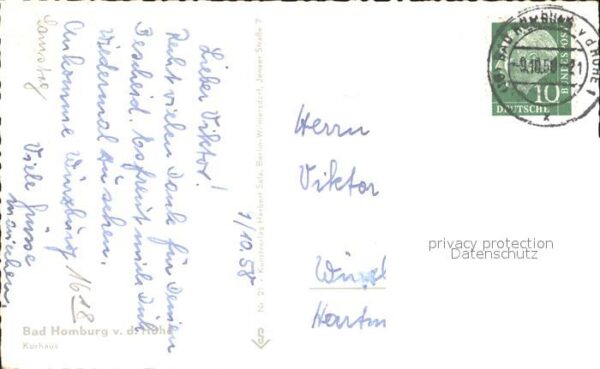 1/10.58
Lieber Viktor!
Recht vielen Dank für Deinen
Bescheid. Es freut mich Dich
Wiedermal zu sehen.
Ankomme Würzburg 1618
Samstag
Viele Grüsse
Herrn
Viktor
BAD HOMBURG v. d. HÖHE 1
-9.10.58 21
10
DEUTSCHE
BUNDESPOST
privacy protection
Datenschutz
Bad Homburg v. d. Höhe
Kurhaus
Nr. 21 • Kunstverlag Herbert Sala, Berlin-Wilmersdorf, Jenaer Straße 7